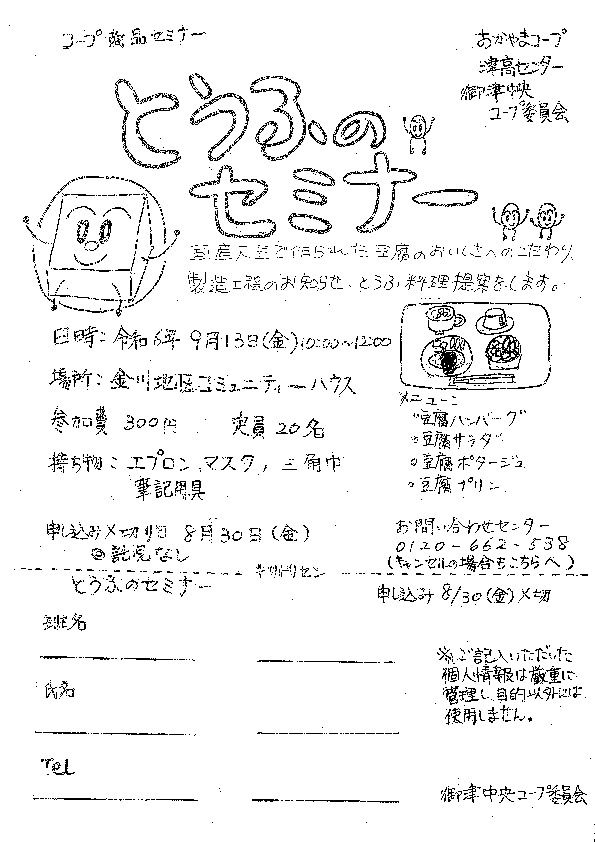 コープ商品セミナー
おかやまコープ
津高センター
御津中央
コープ委員会
とうふの
セミナー
国産大豆で作られた豆腐のおいしさへのこだわり、
製造工程のお知らせ、とうふ料理提案をします。
日時：令和6年 9月13日(金)10:00〜12:00
場所：金川地区コミュニティーハウス
参加費 300円 定員 20名
持ち物：エプロン、マスク、三角巾
筆記用具
メニュー：
○豆腐ハンバーグ
○豆腐サラダ
○豆腐ポタージュ
○豆腐プリン
申し込み〆切り 8月30日(金)
託児なし
お問い合わせセンター
0120-662-538
(キャンセルの場合もこちらへ)
キリトリセン
とうふのセミナー
申し込み 8/30(金)〆切
班名
氏名
Tel
※ご記入いただいた
個人情報は厳重に
管理し、目的以外には
使用しません。
御津中央コープ委員会